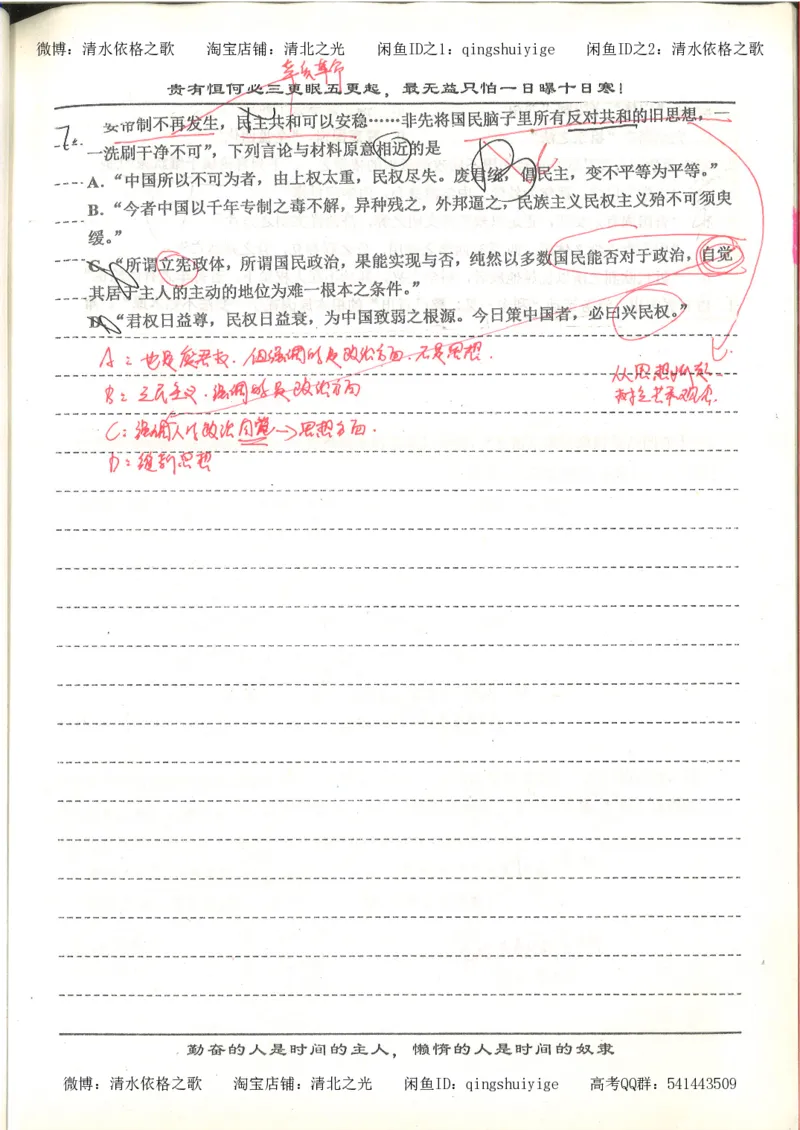 微博：清水依格之歌 淘宝店铺：清北之光 闲鱼ID之1：qingshuiyige 闲鱼ID之2：清水依格之歌
辛亥革命
贵有恒何必三更眠五更起，最无益只怕一日曝十日寒！
7.
要帝制不再发生，民主共和可以安稳……非先将国民脑子里所有反对共和的旧思想，一
一洗刷干净不可”，下列言论与材料原意相近的是
A．“中国所以不可为者，由上权太重，民权尽失。废君统，倡民主，变不平等为平等。”
B．“今者中国以千年专制之毒不解，异种残之，外邦逼之，民族主义民权主义殆不可须臾
缓。”
C．“所谓立宪政体，所谓国民政治，果能实现与否，纯然以多数国民能否对于政治，自觉
其居于主人的主动的地位为难一根本之条件。”
D．“君权日益尊，民权日益衰，为中国致弱之根源。今日策中国者，必曰兴民权。”
A：也是废君权，但强调的是政治方面，不是思想．
B：三民主义，强调的是政治方面
C：强调人的政治自觉→思想方面．
D：维新思想
从思想上
树立共和观念．
勤奋的人是时间的主人，懒惰的人是时间的奴隶
微博：清水依格之歌 淘宝店铺：清北之光 闲鱼ID：qingshuiyige 高考QQ群：541443509